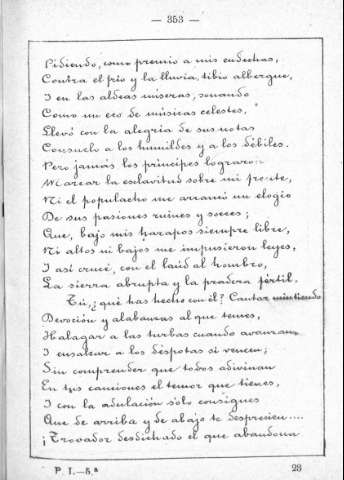 — 353 —
Pidiendo, como premio a mis endechas,
Contra el frío y la lluvia, tibio albergue,
I en las aldeas míseras, sonando
Como un eco de músicas celestes,
Llevó con la alegría de sus notas
Consuelo a los humildes y a los débiles.
Pero jamás los príncipes lograron
Marcar la esclavitud sobre mi frente,
Ni el populacho me arrancó un elogio
De sus pasiones ruines y soeces;
Que, bajo mis harapos siempre libre,
Ni altos ni bajos me impusieron leyes,
I así crucé, con el laúd al hombro,
La sierra abrupta y la pradera fértil.
Tú, ¿qué has hecho con él? Cantar mintiendo
Devoción y alabanzas al que temes,
Halagar a las turbas cuando avanzan
I ensalzar a los déspotas si vencen;
Sin comprender que todos adivinan
En tus canciones el temor que tienes,
I con la adulación sólo consigues
Que de arriba y de abajo te desprecien....
¡Trovador desdichado el que abandona
P. I.—5.ª 23